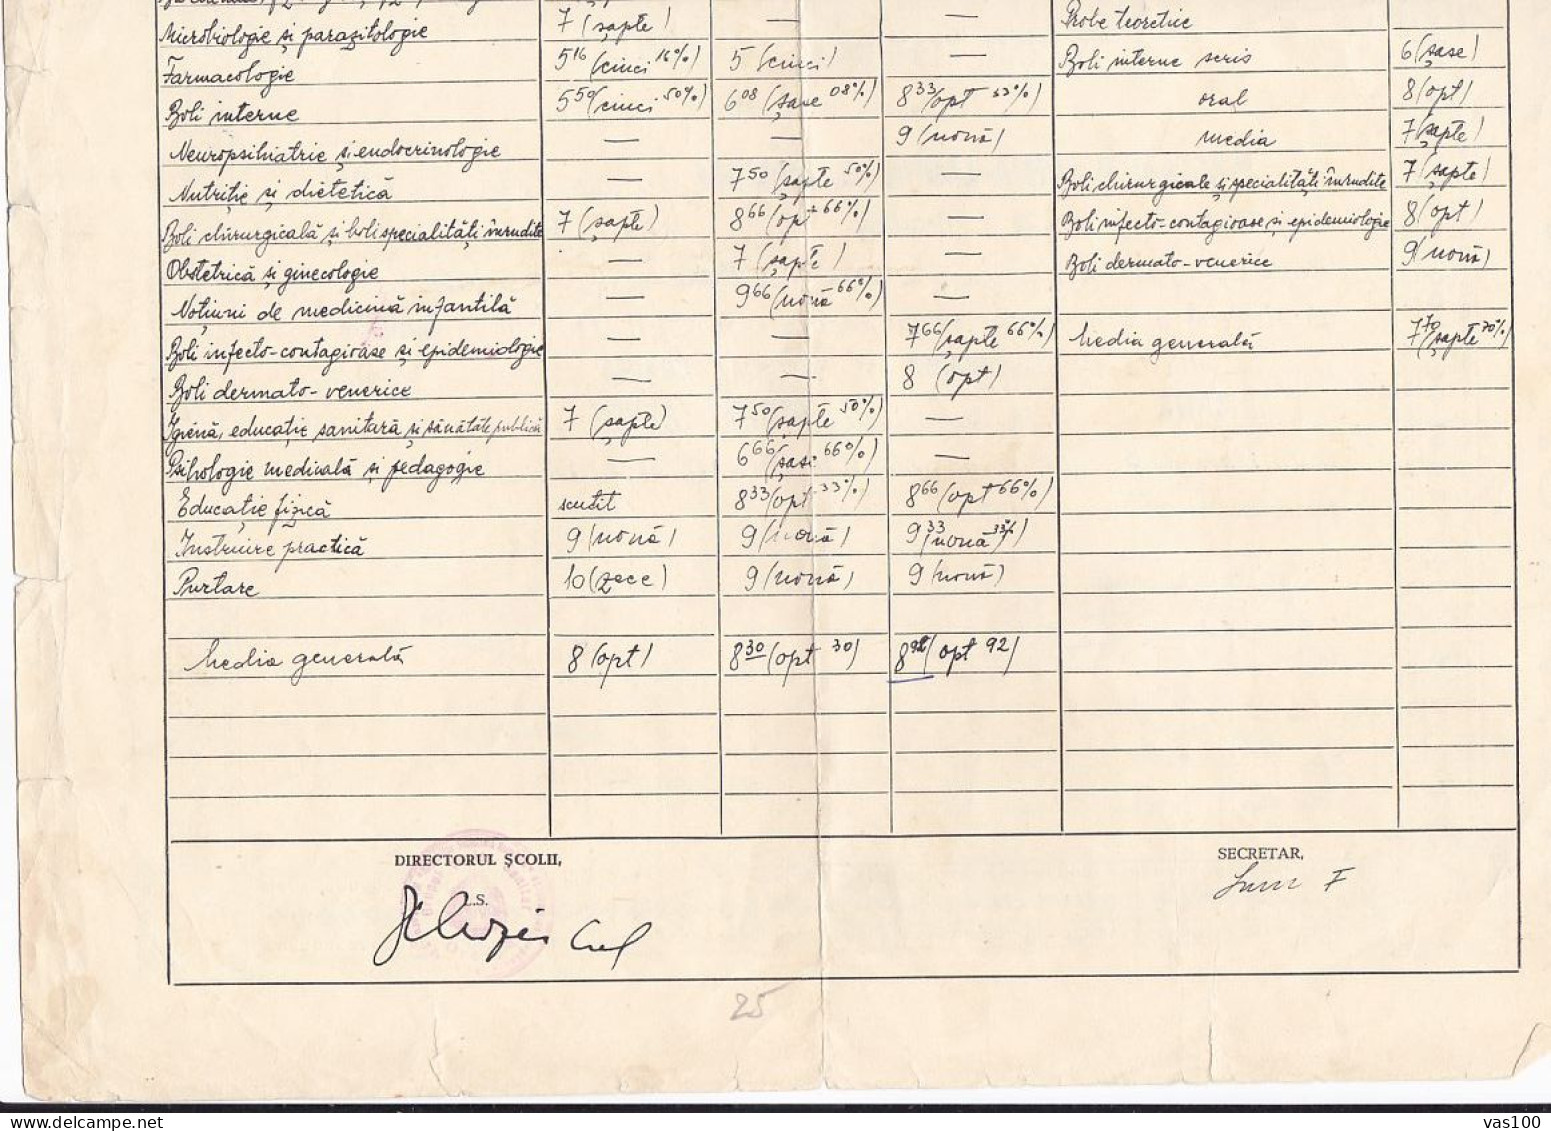 Microbiologie și parazitologie 7 (șapte) — — Probe teoretice
Farmacologie 5 16 (cinci 16%) 5 (cinci) — Boli interne scris 6 (șase)
Boli interne 5 50 (cinci 50%) 6 08 (șase 08%) 8 33 (opt 33%) oral 8 (opt)
Neuropsihiatrie și endocrinologie — — 9 (nouă) media 7 (șapte)
Nutriție și dietetică — 7 50 (șapte 50%) — Boli chirurgicale și specialități înrudite 7 (șapte)
Boli chirurgicală și boli specialități înrudite 7 (șapte) 8 66 (opt 66%) — Boli infecto-contagioase și epidemiologie 8 (opt)
Obstetrică și ginecologie — 7 (șapte) — Boli dermato-venerice 9 (nouă)
Noțiuni de medicină infantilă — 9 66 (nouă 66%) —
Boli infecto-contagioase și epidemiologie — — 7 66 (șapte 66%) Media generală 7 70 (șapte 70%)
Boli dermato-venerice — — 8 (opt)
Igienă, educație sanitară și sănătate publică 7 (șapte) 7 50 (șapte 50%) —
Psihologie medicală și pedagogie — 6 66 (șase 66%) —
Educație fizică scutit 8 33 (opt 33%) 8 66 (opt 66%)
Instruire practică 9 (nouă) 9 (nouă) 9 33 (nouă 33%)
Purtare 10 (zece) 9 (nouă) 9 (nouă)
Media generală 8 (opt) 8 30 (opt 30) 8 92 (opt 92)
DIRECTORUL ȘCOLII, SECRETAR,
L.S.
25
vas100